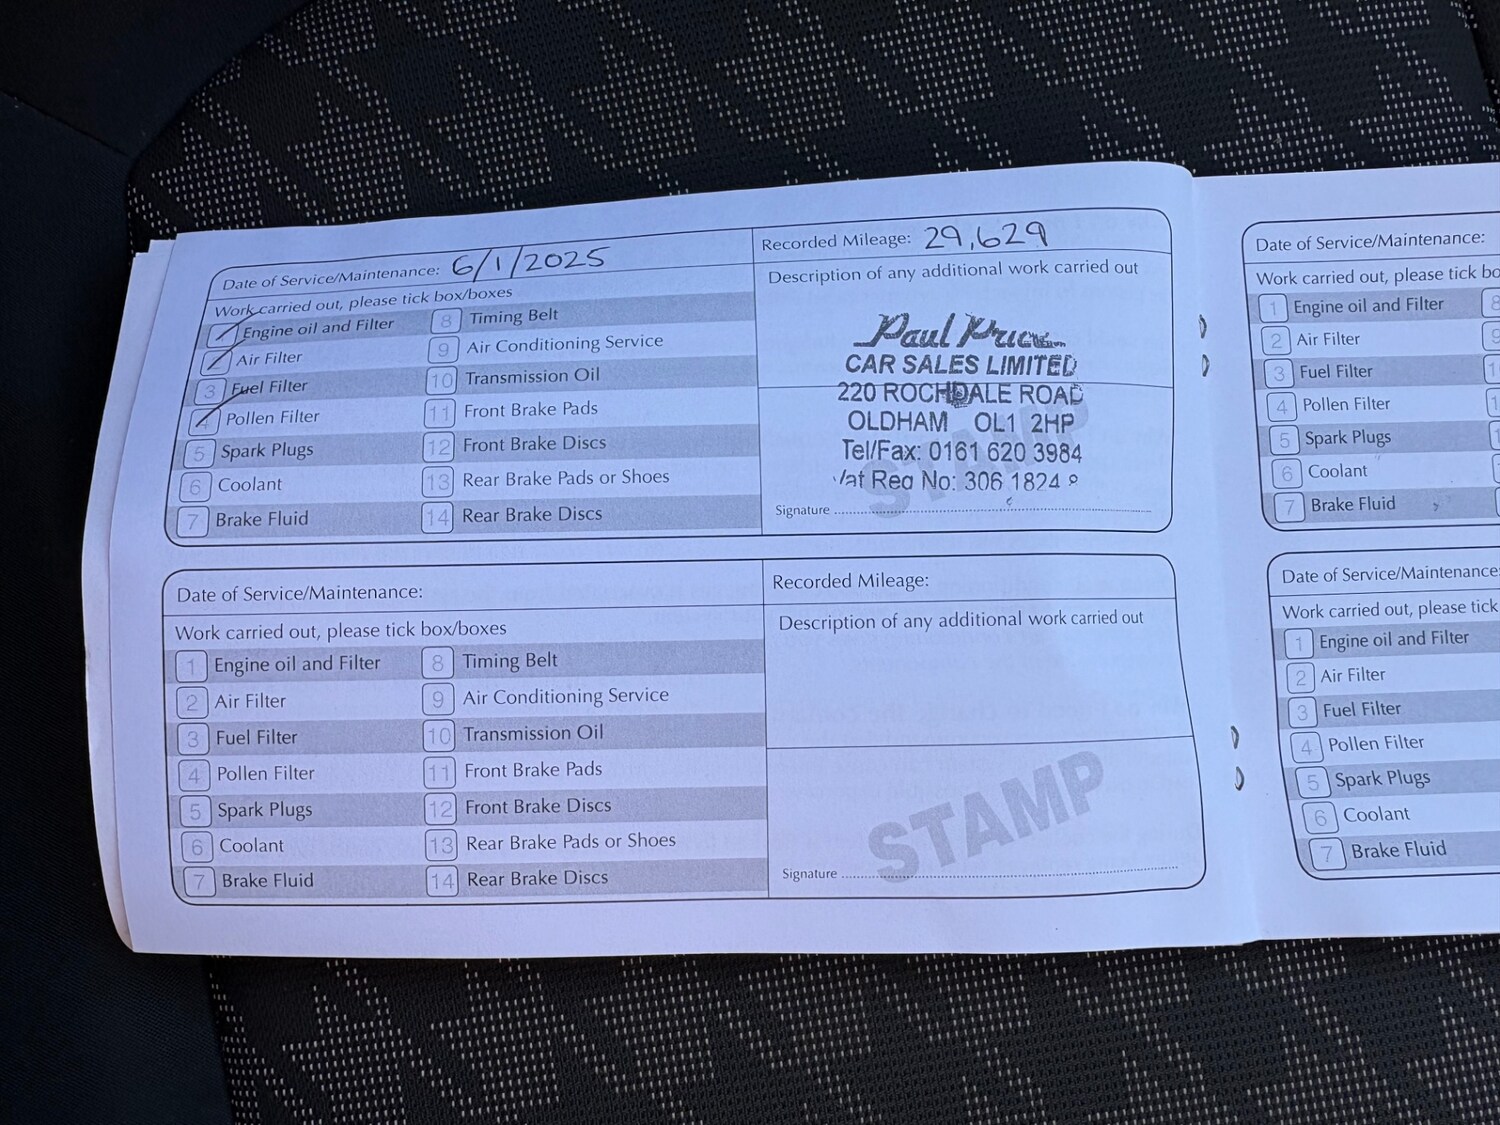 Date of Service/Maintenance: 6/1/2025
Recorded Mileage: 29,629
Work carried out, please tick box/boxes
Engine oil and Filter
Air Filter
3 Fuel Filter
4 Pollen Filter
5 Spark Plugs
6 Coolant
7 Brake Fluid
8 Timing Belt
9 Air Conditioning Service
10 Transmission Oil
11 Front Brake Pads
12 Front Brake Discs
13 Rear Brake Pads or Shoes
14 Rear Brake Discs
Description of any additional work carried out
Paul
CAR SALES LIMITED
220 ROCHDALE ROAD
OLDHAM OL1 2HP
Tel/Fax: 0161 620 3984
Reg No: 306 1824
STAMP
Signature
Date of Service/Maintenance:
Recorded Mileage:
Work carried out, please tick box/boxes
1 Engine oil and Filter
2 Air Filter
3 Fuel Filter
4 Pollen Filter
5 Spark Plugs
6 Coolant
7 Brake Fluid
8 Timing Belt
9 Air Conditioning Service
10 Transmission Oil
11 Front Brake Pads
12 Front Brake Discs
13 Rear Brake Pads or Shoes
14 Rear Brake Discs
Description of any additional work carried out
STAMP
Signature
Date of Service/Maintenance:
Work carried out, please tick bo
1 Engine oil and Filter
2 Air Filter
3 Fuel Filter
4 Pollen Filter
5 Spark Plugs
6 Coolant
7 Brake Fluid
Date of Service/Maintenance:
Work carried out, please tick
1 Engine oil and Filter
2 Air Filter
3 Fuel Filter
4 Pollen Filter
5 Spark Plugs
6 Coolant
7 Brake Fluid